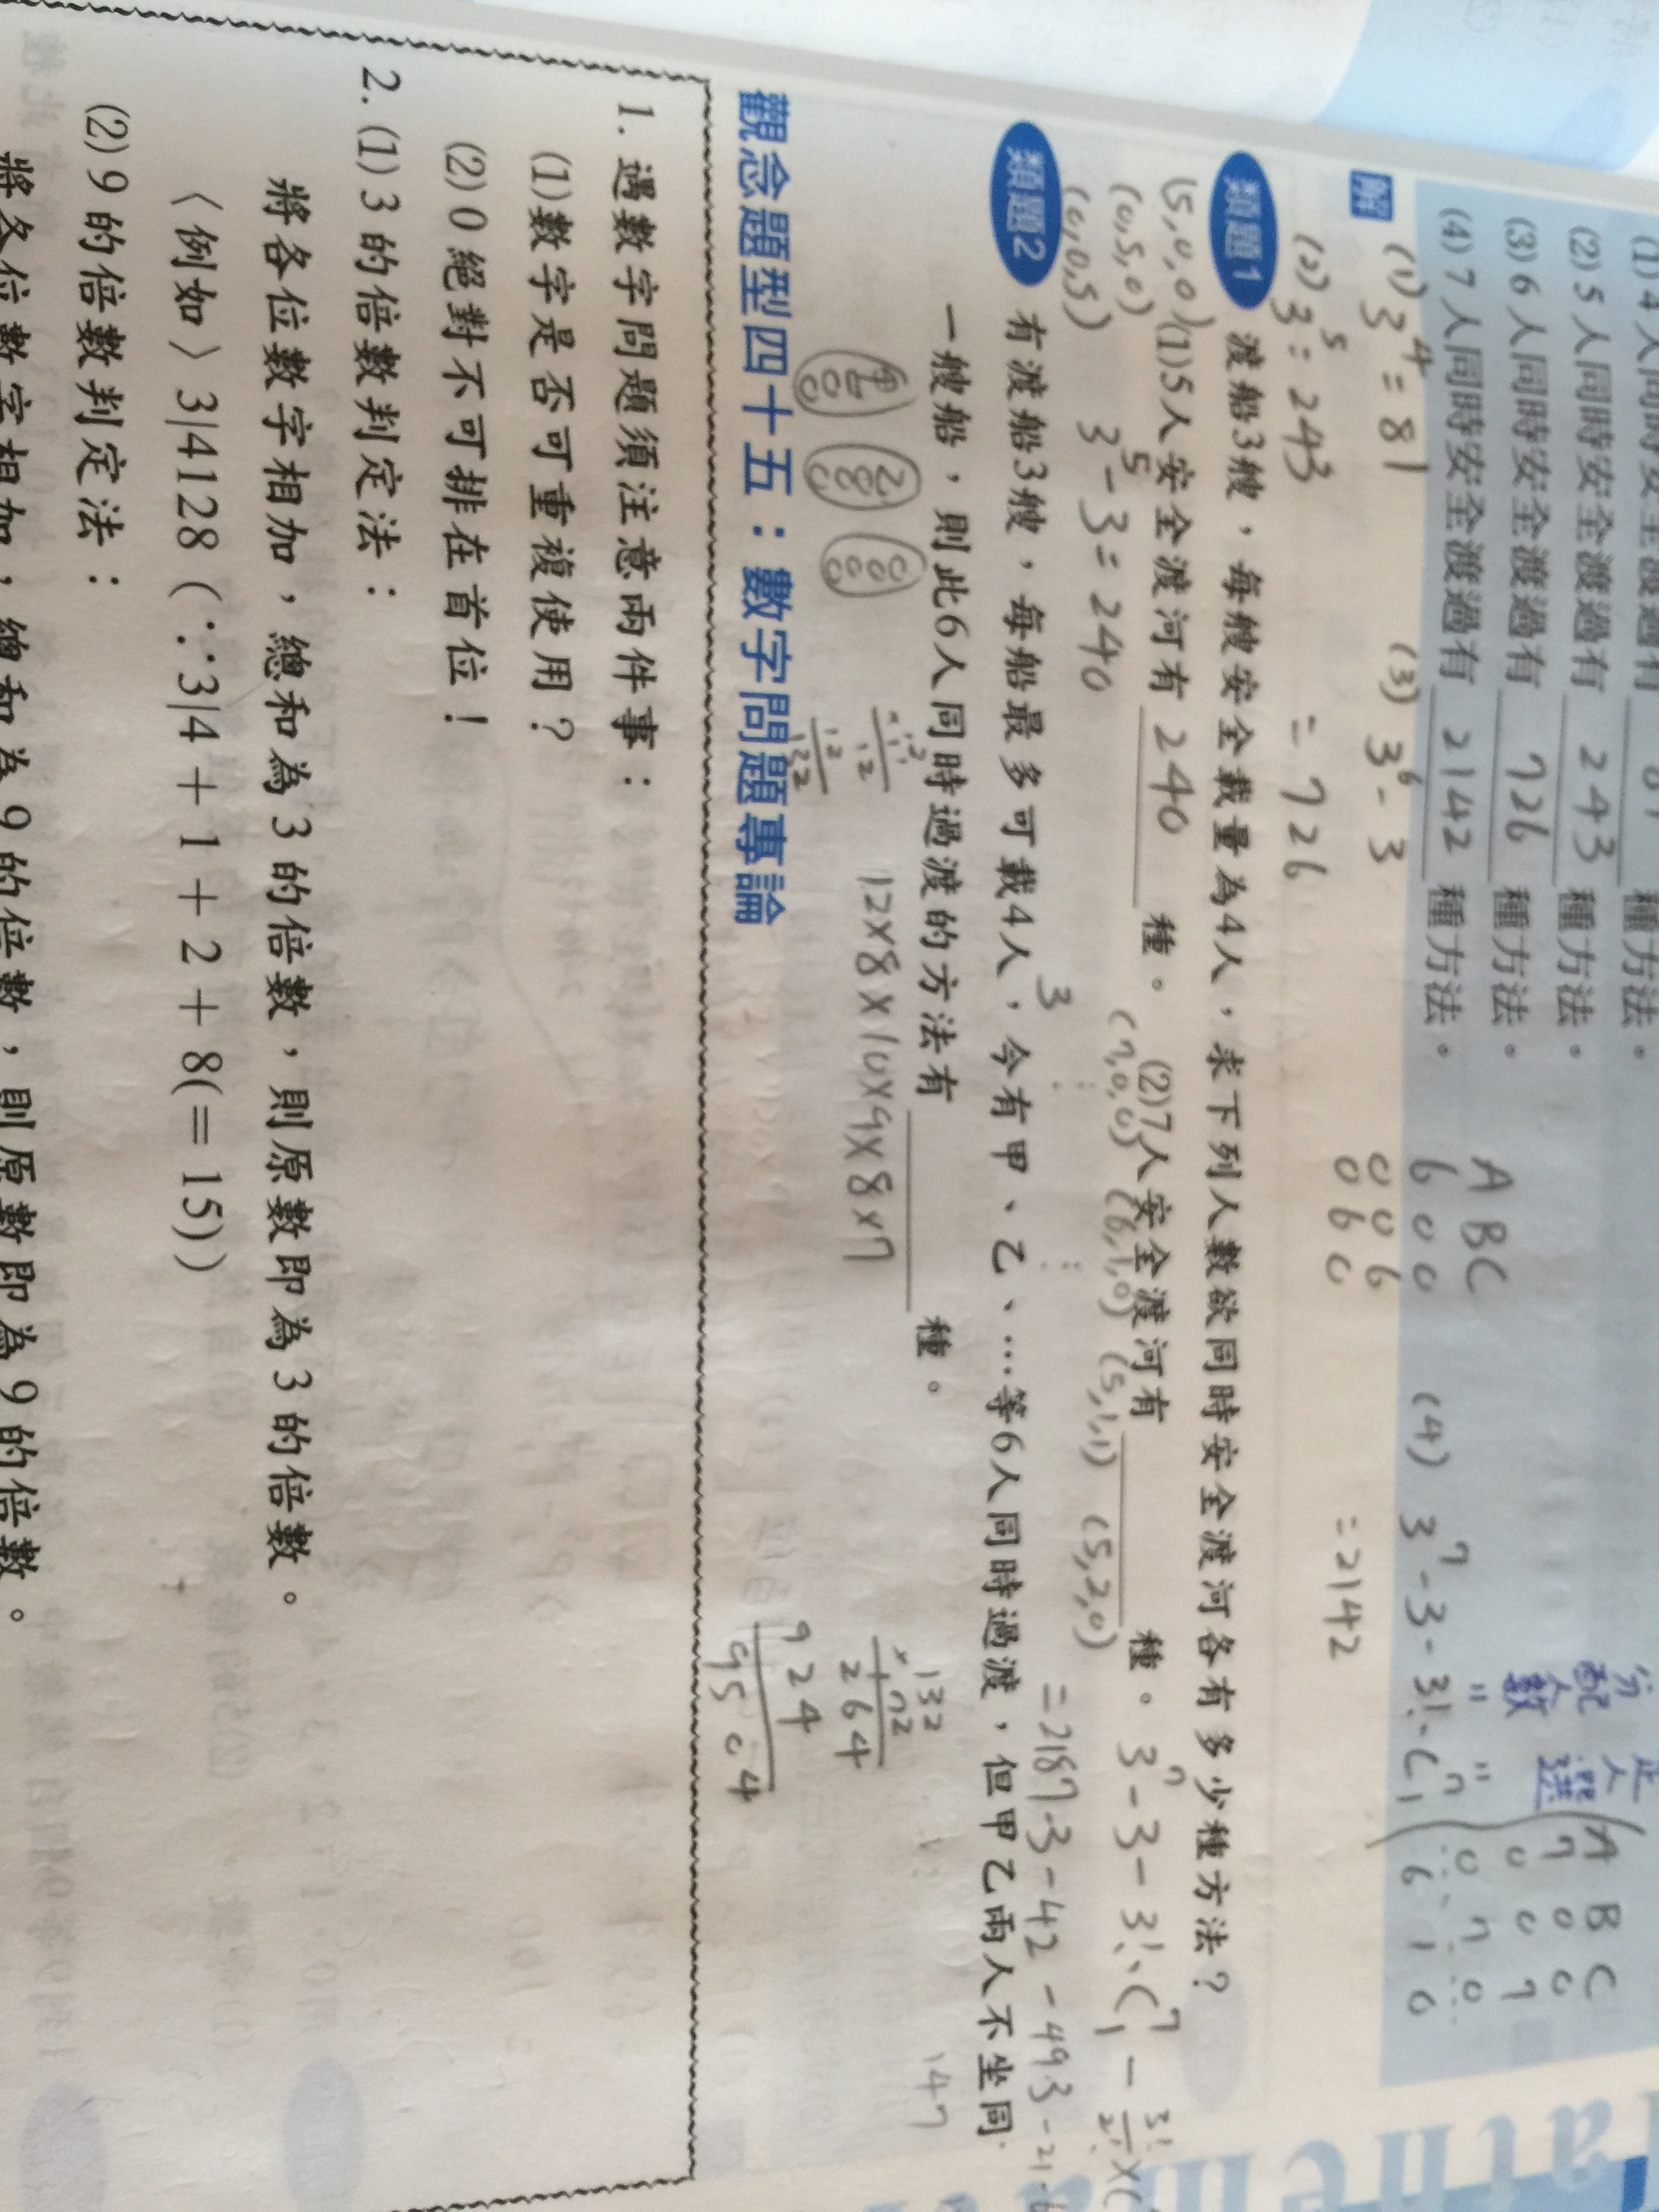 (1) 4人同時安全渡過有 81 種方法。
(2) 5人同時安全渡過有 243 種方法。
(3) 6人同時安全渡過有 726 種方法。
(4) 7人同時安全渡過有 2142 種方法。
解 (1) 3⁴=81
(2) 3⁵=243
(3) 3⁶-3
=726
A B C
6 0 0
0 0 6
0 6 0
(4) 3⁷-3-3!·C⁷₁
=2142
分配人數
选人
A B C
7 0 0
0 0 7
0 7 0
6 1 0
類題1 渡船3艘,每艘安全載量為4人,求下列人數欲同時安全渡河各有多少種方法?
(1)5人安全渡河有 240 種。 (2)7人安全渡河有 種。
(5,0,0)
(0,5,0)
(0,0,5)
3⁵-3=240
(7,0,0) (6,1,0) (5,1,1) (5,2,0)
3⁷-3-3!·C⁷₁-
=2187-3-42-493-21-6
類題2 有渡船3艘,每船最多可載4人,今有甲、乙、…等6人同時過渡,但甲乙兩人不坐同
一艘船,則此6人同時過渡的方法有 種。
12×8×10×9×8×7
132
×72
264
924
9504
147
觀念題型四十五:數字問題專論
1. 遇數字問題須注意兩件事:
(1)數字是否可重複使用?
(2)0絕對不可排在首位!
2. (1)3的倍數判定法:
將各位數字相加,總和為3的倍數,則原數即為3的倍數。
〈例如〉3|4128(∵3|4+1+2+8(=15))
(2)9的倍數判定法:
將各位數字相加,總和為9的倍數,則原數即為9的倍數。